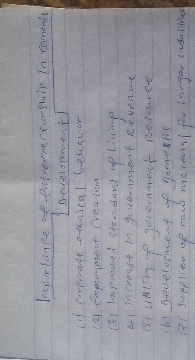 Importance of entrepreneurship in economic
Development
(1) Promote ethical behavior
(2) Employment Creation
(3) Improved Standard of living
(4) Increase in government Revenue
(5) Utility of government Resource
(6) Development of domestic
(7) Supplier of raw material for larger industries